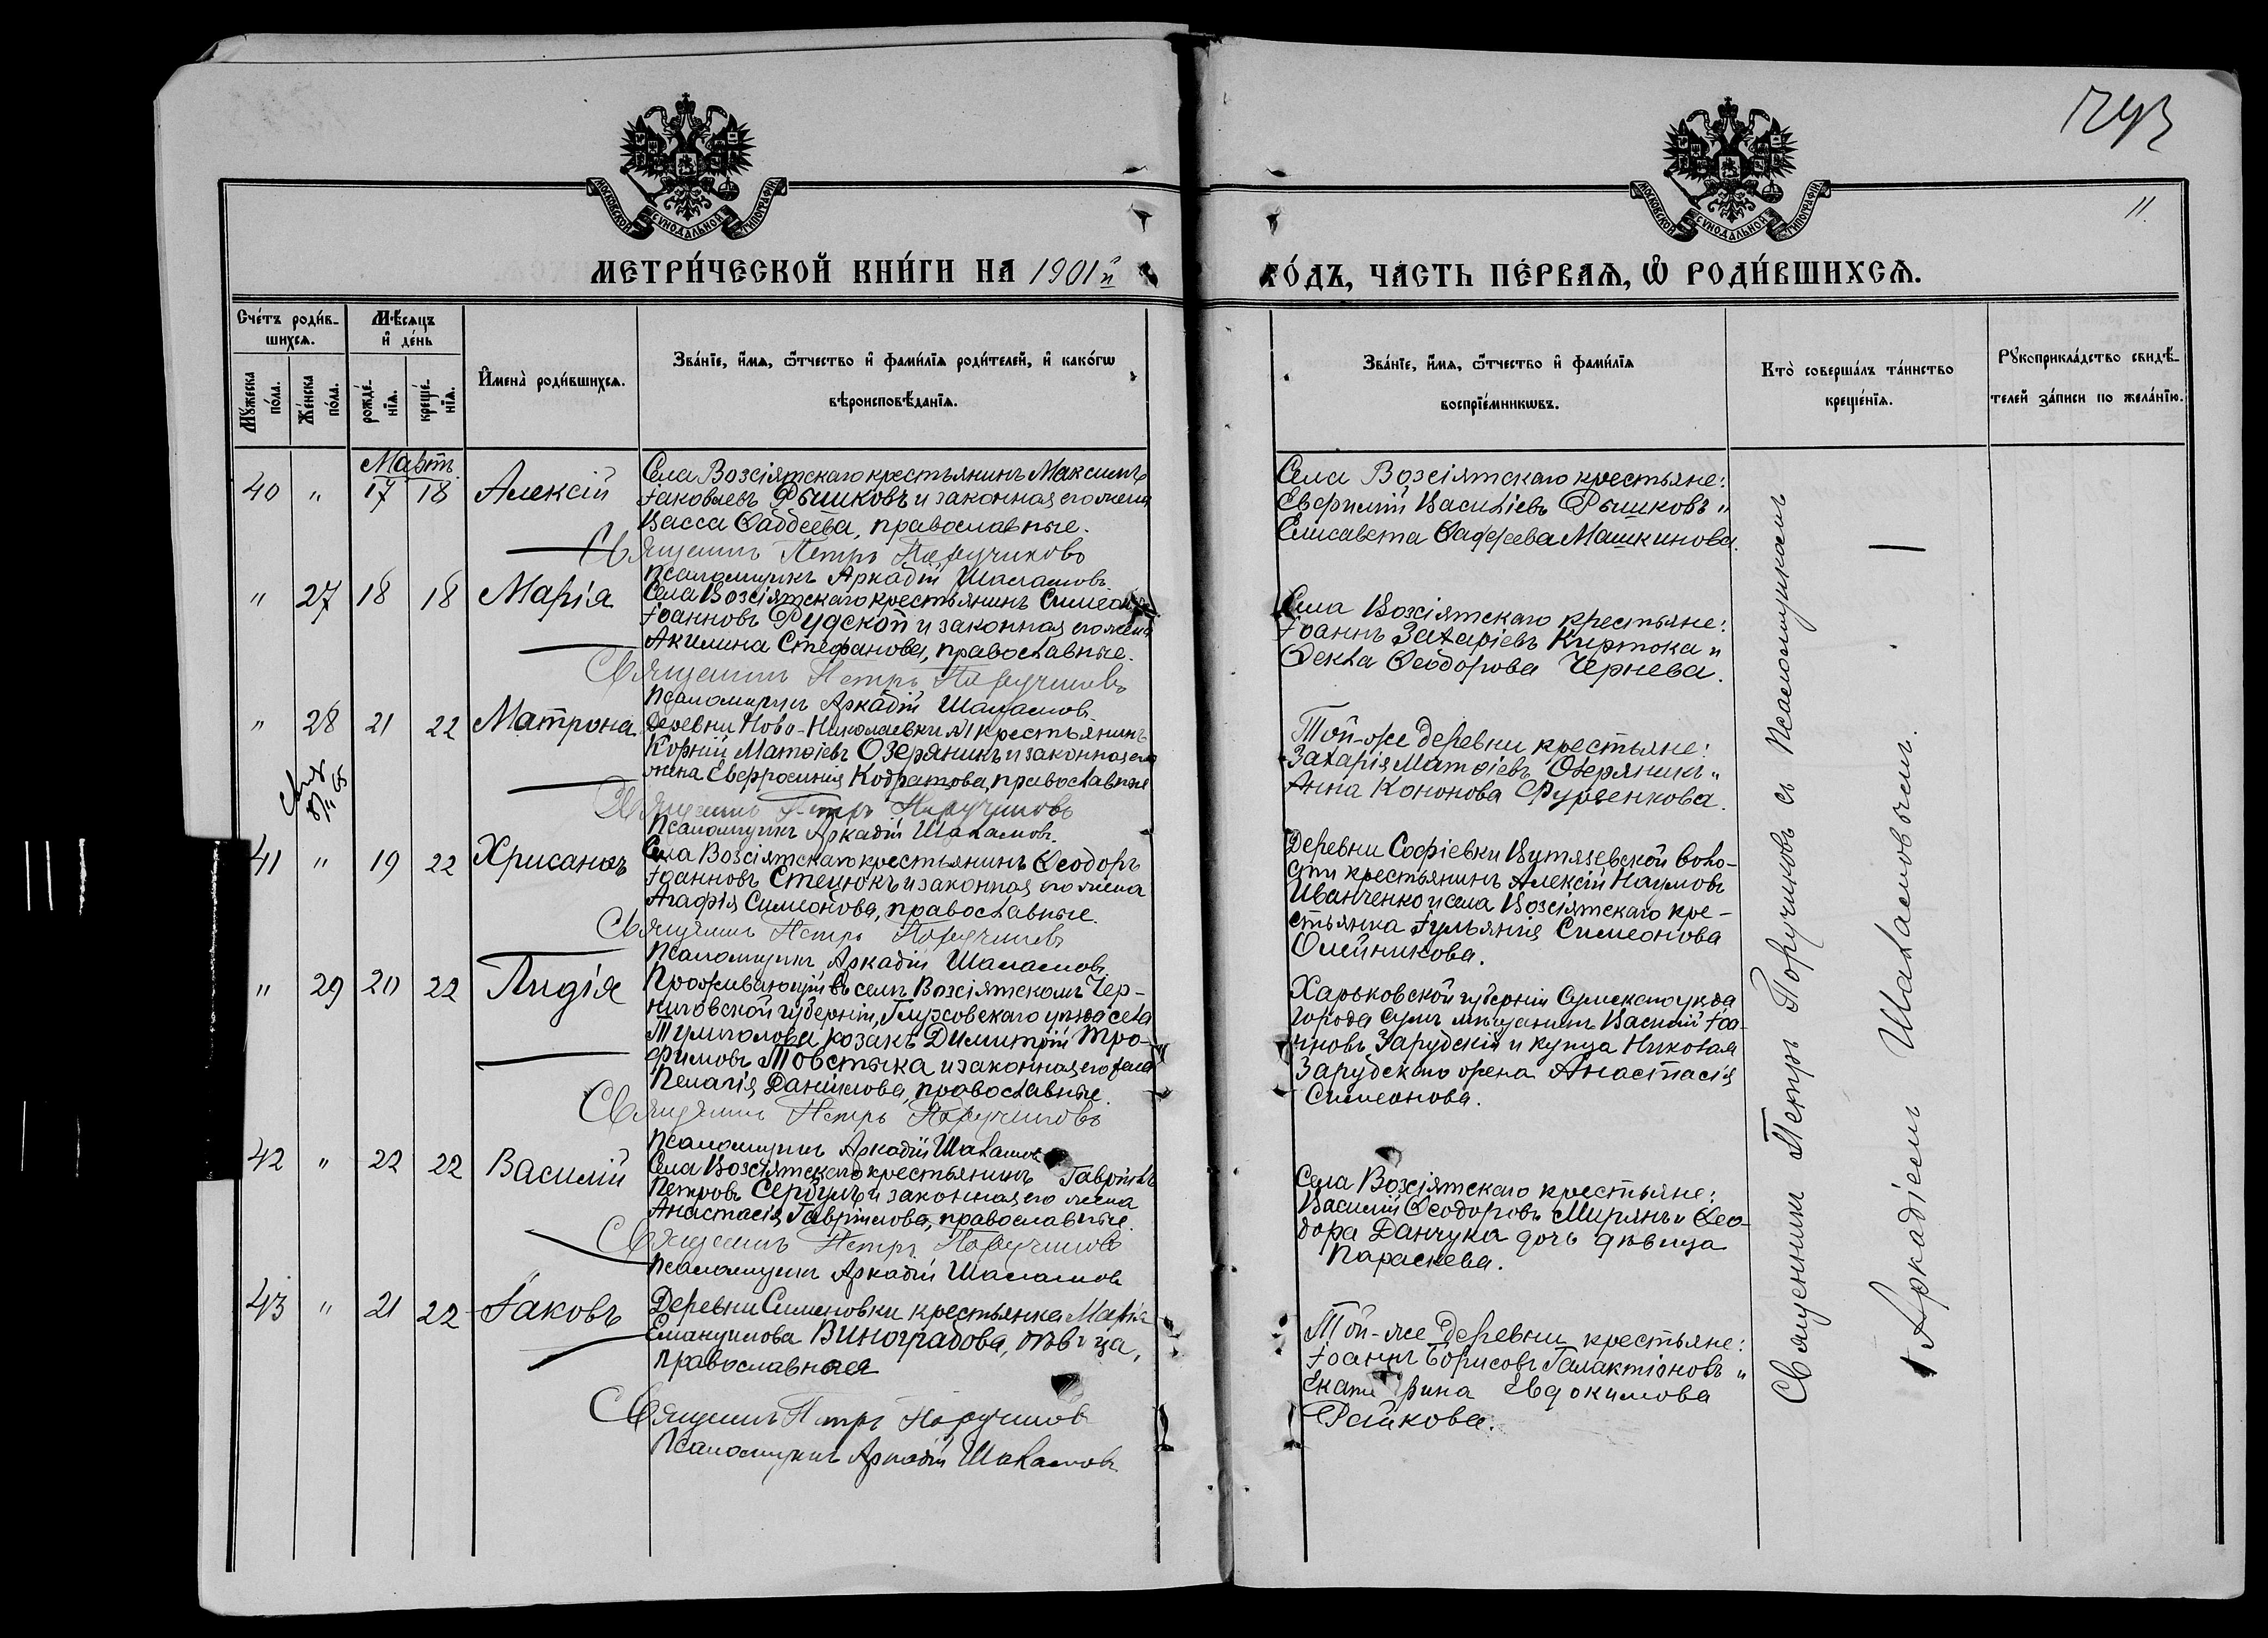 293
11.
МОСКОВСКОЙ СѴНОДАЛЬНОЙ ТИПОГРАФІИ
МОСКОВСКОЙ СѴНОДАЛЬНОЙ ТИПОГРАФІИ
МЕТРИ́ЧЕСКОЙ КНИ́ГИ НА 1901й
ГО́ДЪ, ЧА́СТЬ ПЕ́РВАѦ, Ѡ҆ РОДИ́ВШИХСѦ.
Сче́тъ роди́в-
шихсѧ.
Мꙋ́жеска
по́ла.
Же́нска
по́ла.
Мѣ́сѧцъ
и҆ де́нь
рожде́-
нїѧ.
креще́-
нїѧ.
И҆мена̀ роди́вшихсѧ.
Зва́нїе, и҆́мѧ, ѻ҆́тчество и҆ фами́лїѧ роди́телей, и҆ како́гѡ
вѣроисповѣ́данїѧ.
Зва́нїе, и҆́мѧ, ѻ҆́тчество и҆ фами́лїѧ
воспрїе́мникѡвъ.
Кто̀ соверша́лъ та́инство
креще́нїѧ.
Рꙋкоприкла́дство свидѣ́-
телей за́писи по жела́нїю.
Мартъ
40 " 17 18 Алексій
Села Возсіятскаго крестьянинъ Максимъ
Іаковлевъ Рышковъ и законная его жена
Васса Ѳаддеева, православные.
Священникъ Петръ Поручиковъ
Псаломщикъ Аркадій Шаламовъ
Села Возсіятскаго крестьяне:
Евфимій Василіевъ Рышковъ и
Елисавета Ѳаддеева Машкинова.
" 27 18 18 Марія
Села Возсіятскаго крестьянинъ Симеонъ
Іоанновъ Рудской и законная его жена
Акилина Стефанова, православные.
Священникъ Петръ Поручиковъ
Псаломщикъ Аркадій Шаламовъ
Села Возсіятскаго крестьяне:
Іоаннъ Захаріевъ Киртока и
Ѳекла Ѳеодорова Чернева.
" 28 21 22 Матрона
Деревни Ново-Николаевки крестьянинъ
Корній Матѳіевъ Озеряникъ и законная его
жена Евфросинія Кодратова, православные
Священникъ Петръ Поручиковъ
Псаломщикъ Аркадій Шаламовъ.
Той-же деревни крестьяне:
Захарія Матѳіевъ Озеряникъ и
Анна Кононова Фурсенкова.
41 " 19 22 Хрисанѳъ
Села Возсіятскаго крестьянинъ Ѳеодоръ
Іоанновъ Стецюкъ и законная его жена
Агафія Симеонова, православные.
Священникъ Петръ Поручиковъ
Псаломщикъ Аркадій Шаламовъ.
Деревни Софіевки Витязевской воло-
сти крестьянинъ Алексій Наумовъ
Иванченко и села Возсіятскаго кре-
стьянка Іуліанія Симеонова
Олейникова.
" 29 20 22 Лидія
Проживающій въ селѣ Возсіятскомъ Чер-
ниговской губерніи, Глуховскаго уѣзда села
Тулиголова козакъ Димитрій Тро-
фимовъ Товстыка и законная его жена
Пелагія Даніилова, православные.
Священникъ Петръ Поручиковъ
Псаломщикъ Аркадій Шаламовъ
Харьковской губерніи Сумскаго уѣзда
города Сумъ мѣщанинъ Василій Іоа-
нновъ Зарудскій и купца Николая
Зарудскаго жена Анастасія
Симеонова.
42 " 22 22 Василій
Села Возсіятскаго крестьянинъ Гавріилъ
Петровъ Сербулъ и законная его жена
Анастасія Гавріилова, православные.
Священникъ Петръ Поручиковъ
Псаломщикъ Аркадій Шаламовъ
Села Возсіятскаго крестьяне:
Василій Ѳеодоровъ Мирянъ и Ѳео-
дора Данчука дочь дѣвица
Параскева.
43 " 21 22 Іаковъ
Деревни Симоновки крестьянка Марія
Емануилова Виноградова, дѣвица,
православная
Священникъ Петръ Поручиковъ
Псаломщикъ Аркадій Шаламовъ
Той-же деревни крестьяне:
Іоаннъ Борисовъ Галактіоновъ и
Екатерина Евдокимова
Райкова.
Священникъ Петръ Поручиковъ съ Псаломщикомъ
Аркадіемъ Шаламовымъ.